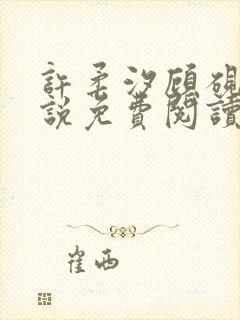 許柔汐顧硯
說免費閱讀
崔西